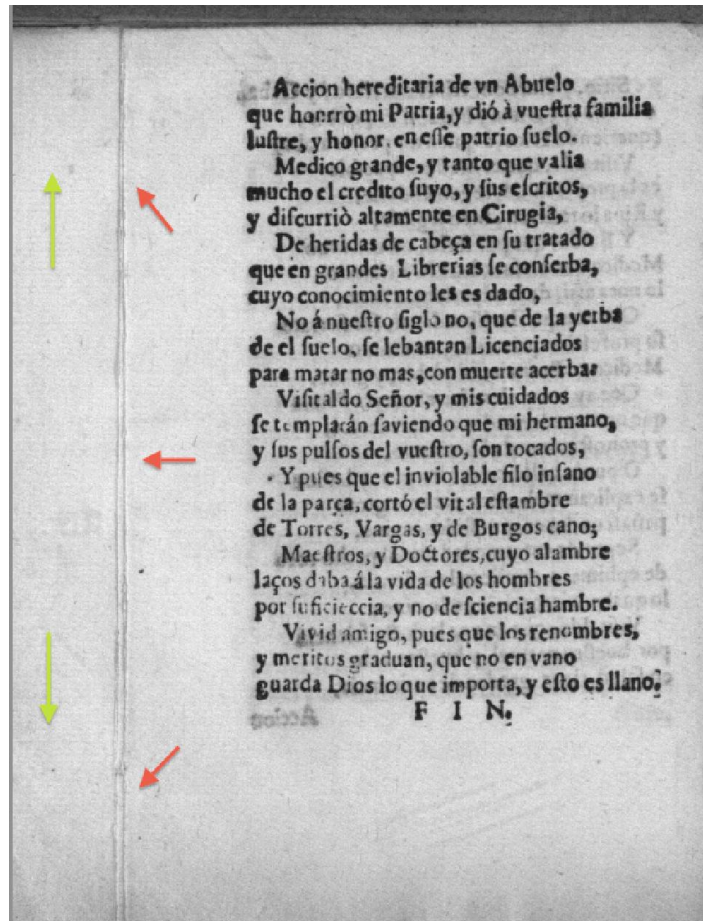 Accion hereditaria de vn Abuelo
que honrrò mi Patria, y dió à vueſtra familia
luſtre, y honor, en eſſe patrio ſuelo.
Medico grande, y tanto que valia
mucho el credito ſuyo, y ſus eſcritos,
y diſcurriò altamente en Cirugia,
De heridas de cabeça en ſu tratado
que en grandes Librerias ſe conſerba,
cuyo conocimiento les es dado,
No á nueſtro ſiglo no, que de la yerba
de el ſuelo, ſe lebantan Licenciados
para matar no mas, con muerte acerba:
Viſitaldo Señor, y mis cuidados
ſe templarán ſaviendo que mi hermano,
y ſus pulſos del vueſtro, ſon tocados,
Y pues que el inviolable filo inſano
de la parça, cortó el vital eſtambre
de Torres, Vargas, y de Burgos cano;
Maeſtros, y Doctores, cuyo alambre
laços daba á la vida de los hombres
por ſuficieccia, y no de ſciencia hambre.
Vivid amigo, pues que los renombres,
y meritos graduan, que no en vano
guarda Dios lo que importa, y eſto es llano.
F I N.